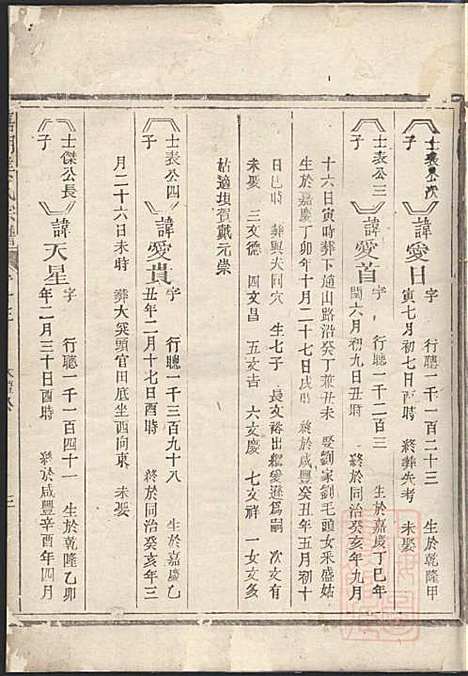 士表公次子
諱愛日
字 行聽一千一百二十三 生於乾隆甲
寅七月初七日酉時 終葬失考 未娶
士表公三子
諱愛首
字 行聽一千二百三 生於嘉慶丁巳年
閏六月初九日丑時 終於同治癸亥年九月
十六日寅時葬下通山路沿癸丁兼丑未 娶劉家劉毛頭女釆盛姑
生於嘉慶丁卯年十月二十七日戌時 終於癸丑年五月初十
日巳時 葬與夫同穴 生七子 長文裕出繼愛遜爲嗣 次文有
未娶 三文德 四文昌 五文吉 六文慶 七文祥 一女文多
姑適垻賀戴元崇
士表公四子
諱愛貴
字 行聽一千三百九十八 生於嘉慶乙
丑年二月十七日酉時 終於同治癸亥年三
月二十六日未時 葬大巽頭官田底坐西向東 未娶
士傑公長子
諱天星
字 行聽一千一百四十一 生於乾隆乙卯
年二月三十日酉時 終於咸豐辛酉年四月